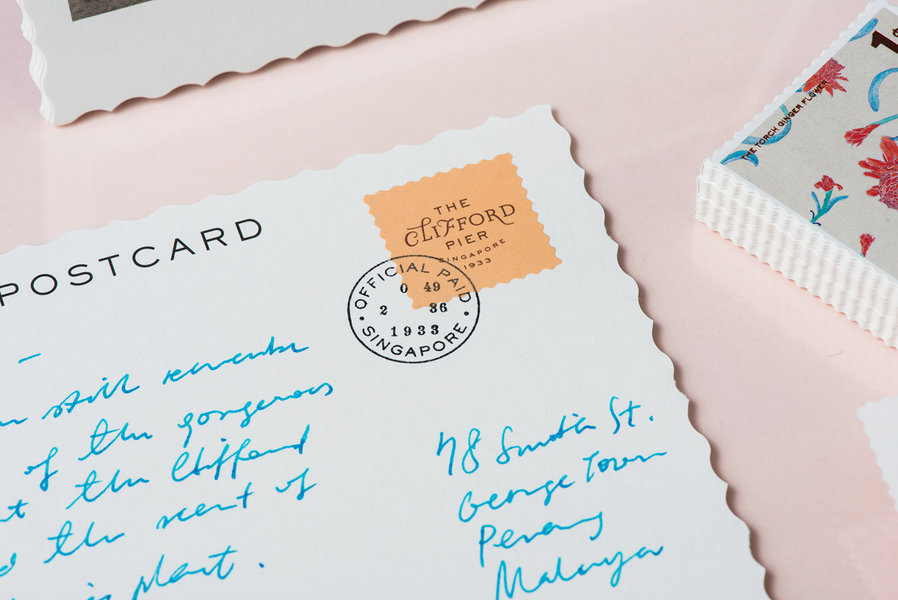 POSTCARD
THE
CLIFFORD
PIER
SINGAPORE
1933
OFFICIAL PAID
0 49
2 36
1933
• SINGAPORE •
still remember
of the gorgerous
the Clifford
the scent of
plant.
78 Smith St.
George Town
Penang
Malaya
THE TORCH GINGER FLOWER
1